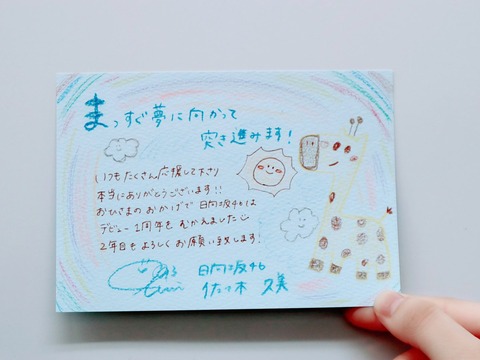 まっすぐ夢に向かって
突き進みます!
いつもたくさん応援して下さり
本当にありがとうございます!!
おひさまのおかげで日向坂46は
デビュー1周年をむかえました
2年目もよろしくお願い致します!
日向坂46
佐々木 久美